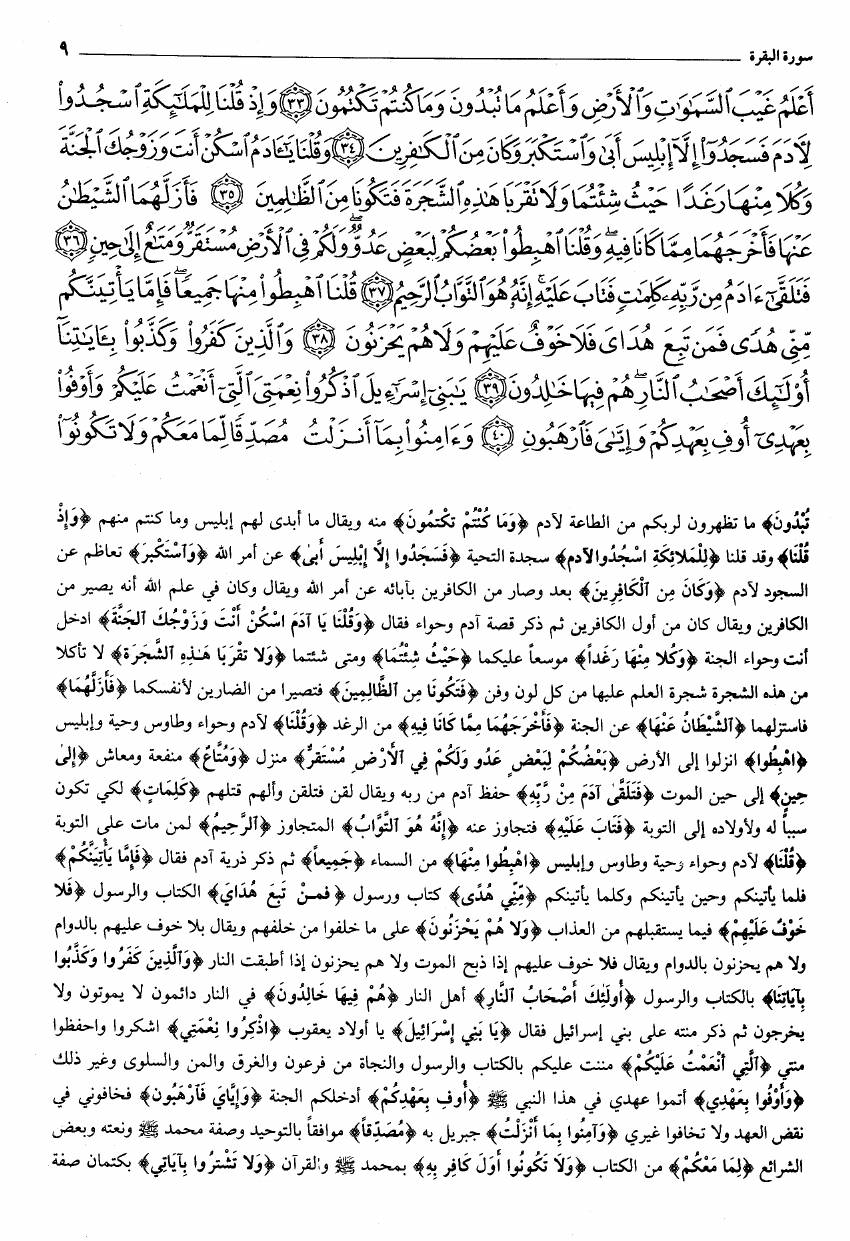 سورة البقرة ٩
أَعْلَمُ غَيْبَ ٱلسَّمَٰوَٰتِ وَٱلْأَرْضِ وَأَعْلَمُ مَا تُبْدُونَ وَمَا كُنتُمْ تَكْتُمُونَ ٣٣ وَإِذْ قُلْنَا لِلْمَلَٰٓئِكَةِ ٱسْجُدُوا۟
لِـَٔادَمَ فَسَجَدُوٓا۟ إِلَّآ إِبْلِيسَ أَبَىٰ وَٱسْتَكْبَرَ وَكَانَ مِنَ ٱلْكَٰفِرِينَ ٣٤ وَقُلْنَا يَٰٓـَٔادَمُ ٱسْكُنْ أَنتَ وَزَوْجُكَ ٱلْجَنَّةَ
وَكُلَا مِنْهَا رَغَدًا حَيْثُ شِئْتُمَا وَلَا تَقْرَبَا هَٰذِهِ ٱلشَّجَرَةَ فَتَكُونَا مِنَ ٱلظَّٰلِمِينَ ٣٥ فَأَزَلَّهُمَا ٱلشَّيْطَٰنُ
عَنْهَا فَأَخْرَجَهُمَا مِمَّا كَانَا فِيهِ ۖ وَقُلْنَا ٱهْبِطُوا۟ بَعْضُكُمْ لِبَعْضٍ عَدُوٌّ ۖ وَلَكُمْ فِى ٱلْأَرْضِ مُسْتَقَرٌّ وَمَتَٰعٌ إِلَىٰ حِينٍ ٣٦
فَتَلَقَّىٰٓ ءَادَمُ مِن رَّبِّهِۦ كَلِمَٰتٍ فَتَابَ عَلَيْهِ ۚ إِنَّهُۥ هُوَ ٱلتَّوَّابُ ٱلرَّحِيمُ ٣٧ قُلْنَا ٱهْبِطُوا۟ مِنْهَا جَمِيعًا ۖ فَإِمَّا يَأْتِيَنَّكُم
مِّنِّى هُدًى فَمَن تَبِعَ هُدَاىَ فَلَا خَوْفٌ عَلَيْهِمْ وَلَا هُمْ يَحْزَنُونَ ٣٨ وَٱلَّذِينَ كَفَرُوا۟ وَكَذَّبُوا۟ بِـَٔايَٰتِنَآ
أُو۟لَٰٓئِكَ أَصْحَٰبُ ٱلنَّارِ ۖ هُمْ فِيهَا خَٰلِدُونَ ٣٩ يَٰبَنِىٓ إِسْرَٰٓءِيلَ ٱذْكُرُوا۟ نِعْمَتِىَ ٱلَّتِىٓ أَنْعَمْتُ عَلَيْكُمْ وَأَوْفُوا۟
بِعَهْدِىٓ أُوفِ بِعَهْدِكُمْ وَإِيَّٰىَ فَٱرْهَبُونِ ٤٠ وَءَامِنُوا۟ بِمَآ أَنزَلْتُ مُصَدِّقًا لِّمَا مَعَكُمْ وَلَا تَكُونُوٓا۟
تُبْدُونَ﴾ ما تظهرون لربكم من الطاعة لآدم ﴿وَمَا كُنْتُمْ تكْتمُونَ﴾ منه ويقال ما أبدى لهم إبليس وما كنتم منهم ﴿وَإِذْ
قُلْنَا﴾ وقد قلنا ﴿لِلْمَلائِكَةِ اسْجُدُوالآدم﴾ سجدة التحية ﴿فَسَجَدُوا إلَّا إبْلِيسَ أبىٰ﴾ عن أمر الله ﴿وَٱسْتَكْبَرَ﴾ تعاظم عن
السجود لآدم ﴿وَكَانَ مِنَ ٱلْكَافِرِينَ﴾ بعد وصار من الكافرين بآبائه عن أمر الله ويقال وكان في علم الله أنه يصير من
الكافرين ويقال كان من أول الكافرين ثم ذكر قصة آدم وحواء فقال ﴿وَقُلْنَا يَا آدَمَ اسْكُنْ أَنْتَ وَزَوْجُكَ ٱلجَنَّةَ﴾ ادخل
أنت وحواء الجنة ﴿وَكُلا مِنْهَا رَغَداً﴾ موسعاً عليكما ﴿حَيْثُ شِئْتُمَا﴾ ومتى شئتما ﴿وَلا تقْرَبَا هَـٰذِهِ الشَّجَرَة﴾ لا تأكلا
من هذه الشجرة شجرة العلم عليها من كل لون وفن ﴿فَتَكُونَا مِنَ الظَّالِمِينَ﴾ فتصيرا من الضارين لأنفسكما ﴿فَأَزَلَّهُمَا﴾
فاستزلهما ﴿ٱلشَّيْطَانُ عَنْهَا﴾ عن الجنة ﴿فَأَخْرَجَهُمَا مِمَّا كَانَا فِيهِ﴾ من الرغد ﴿وَقُلْنَا﴾ لآدم وحواء وطاوس وحية وإبليس
﴿اهْبِطُوا﴾ انزلوا إلى الأرض ﴿بَعْضُكُمْ لِبَعْضٍ عَدُو وَلَكُمْ فِي ٱلأَرْضِ مُسْتَقَرٌّ﴾ منزل ﴿وَمُتَّاعٌ﴾ منفعة ومعاش ﴿إلىٰ
حِينٍ﴾ إلى حين الموت ﴿فَتَلَقَّىٰ آدَمَ مِنْ رَّبِّهِ﴾ حفظ آدم من ربه ويقال لقن فتلقن وألهم فتلهم ﴿كَلِمَاتٍ﴾ لكي تكون
سبباً له ولأولاده إلى التوبة ﴿فَتَابَ عَلَيْهِ﴾ فتجاوز عنه ﴿إِنَّهُ هُوَ ٱلتَّوَّابُ﴾ المتجاوز ﴿ٱلرَّحِيمُ﴾ لمن مات على التوبة
﴿قُلْنَا﴾ لآدم وحواء وحية وطاوس وإبليس ﴿اهْبِطُوا مِنْهَا﴾ من السماء ﴿جَمِيعاً﴾ ثم ذكر ذرية آدم فقال ﴿فَإمَّا يَأْتِيَنَّكُمْ﴾
فلما يأتينكم وحين يأتينكم وكلما يأتينكم ﴿مِّنِّي هُدًى﴾ كتاب ورسول ﴿فمنْ تَبِعَ هُدَايَ﴾ الكتاب والرسول ﴿فَلا
خَوْفٌ عَلَيْهِمْ﴾ فيما يستقبلهم من العذاب ﴿وَلا هُمْ يَحْزَنُونَ﴾ على ما خلفوا من خلفهم ويقال بلا خوف عليهم بالدوام
ولا هم يحزنون بالدوام ويقال فلا خوف عليهم إذا ذبح الموت ولا هم يحزنون إذا أطبقت النار ﴿وَٱلَّذِينَ كَفَرُوا وَكَذَّبُوا
بِآيَاتِنَا﴾ بالكتاب والرسول ﴿أُولَئِكَ أَصْحَابُ ٱلنَّارِ﴾ أهل النار ﴿هُمْ فِيهَا خَالِدُونَ﴾ في النار دائمون لا يموتون ولا
يخرجون ثم ذكر منته على بني إسرائيل فقال ﴿يَا بَنِي إسْرَائِيلَ﴾ يا أولاد يعقوب ﴿اذْكِرُوا نِعْمَتِي﴾ اشكروا واحفظوا
منتي ﴿ٱلَّتِي أَنْعَمْتُ عَلَيْكُمْ﴾ مننت عليكم بالكتاب والرسول والنجاة من فرعون والغرق والمن والسلوى وغير ذلك
﴿وَأَوْفُوا بِعَهْدِي﴾ أتموا عهدي في هذا النبي ﷺ ﴿أُوفِ بِعَهْدِكُمْ﴾ أدخلكم الجنة ﴿وَإيَّايَ فَٱرْهَبُونِ﴾ فخافوني في
نقض العهد ولا تخافوا غيري ﴿وَآمِنُوا بِمَا أَنْزَلْتُ﴾ جبريل به ﴿مُصَدِّقاً﴾ موافقاً بالتوحيد وصفة محمد ﷺ ونعته وبعض
الشرائع ﴿لِمَا مَعَكُمْ﴾ من الكتاب ﴿وَلَا تَكُونُوا أَوَلَ كَافِر بِهِ﴾ بمحمد ﷺ والقرآن ﴿وَلا تَشْتَرُوا بِآيَاتِي﴾ بكتمان صفة